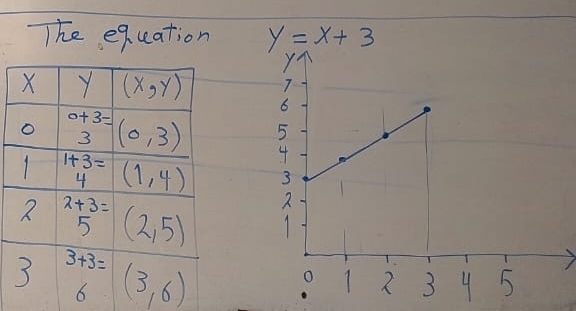 The equation Y = X + 3
X Y (X,Y)
0 0+3= 3 (0,3)
1 1+3= 4 (1,4)
2 2+3= 5 (2,5)
3 3+3= 6 (3,6)
Y
7
6
5
4
3
2
1
0 1 2 3 4 5